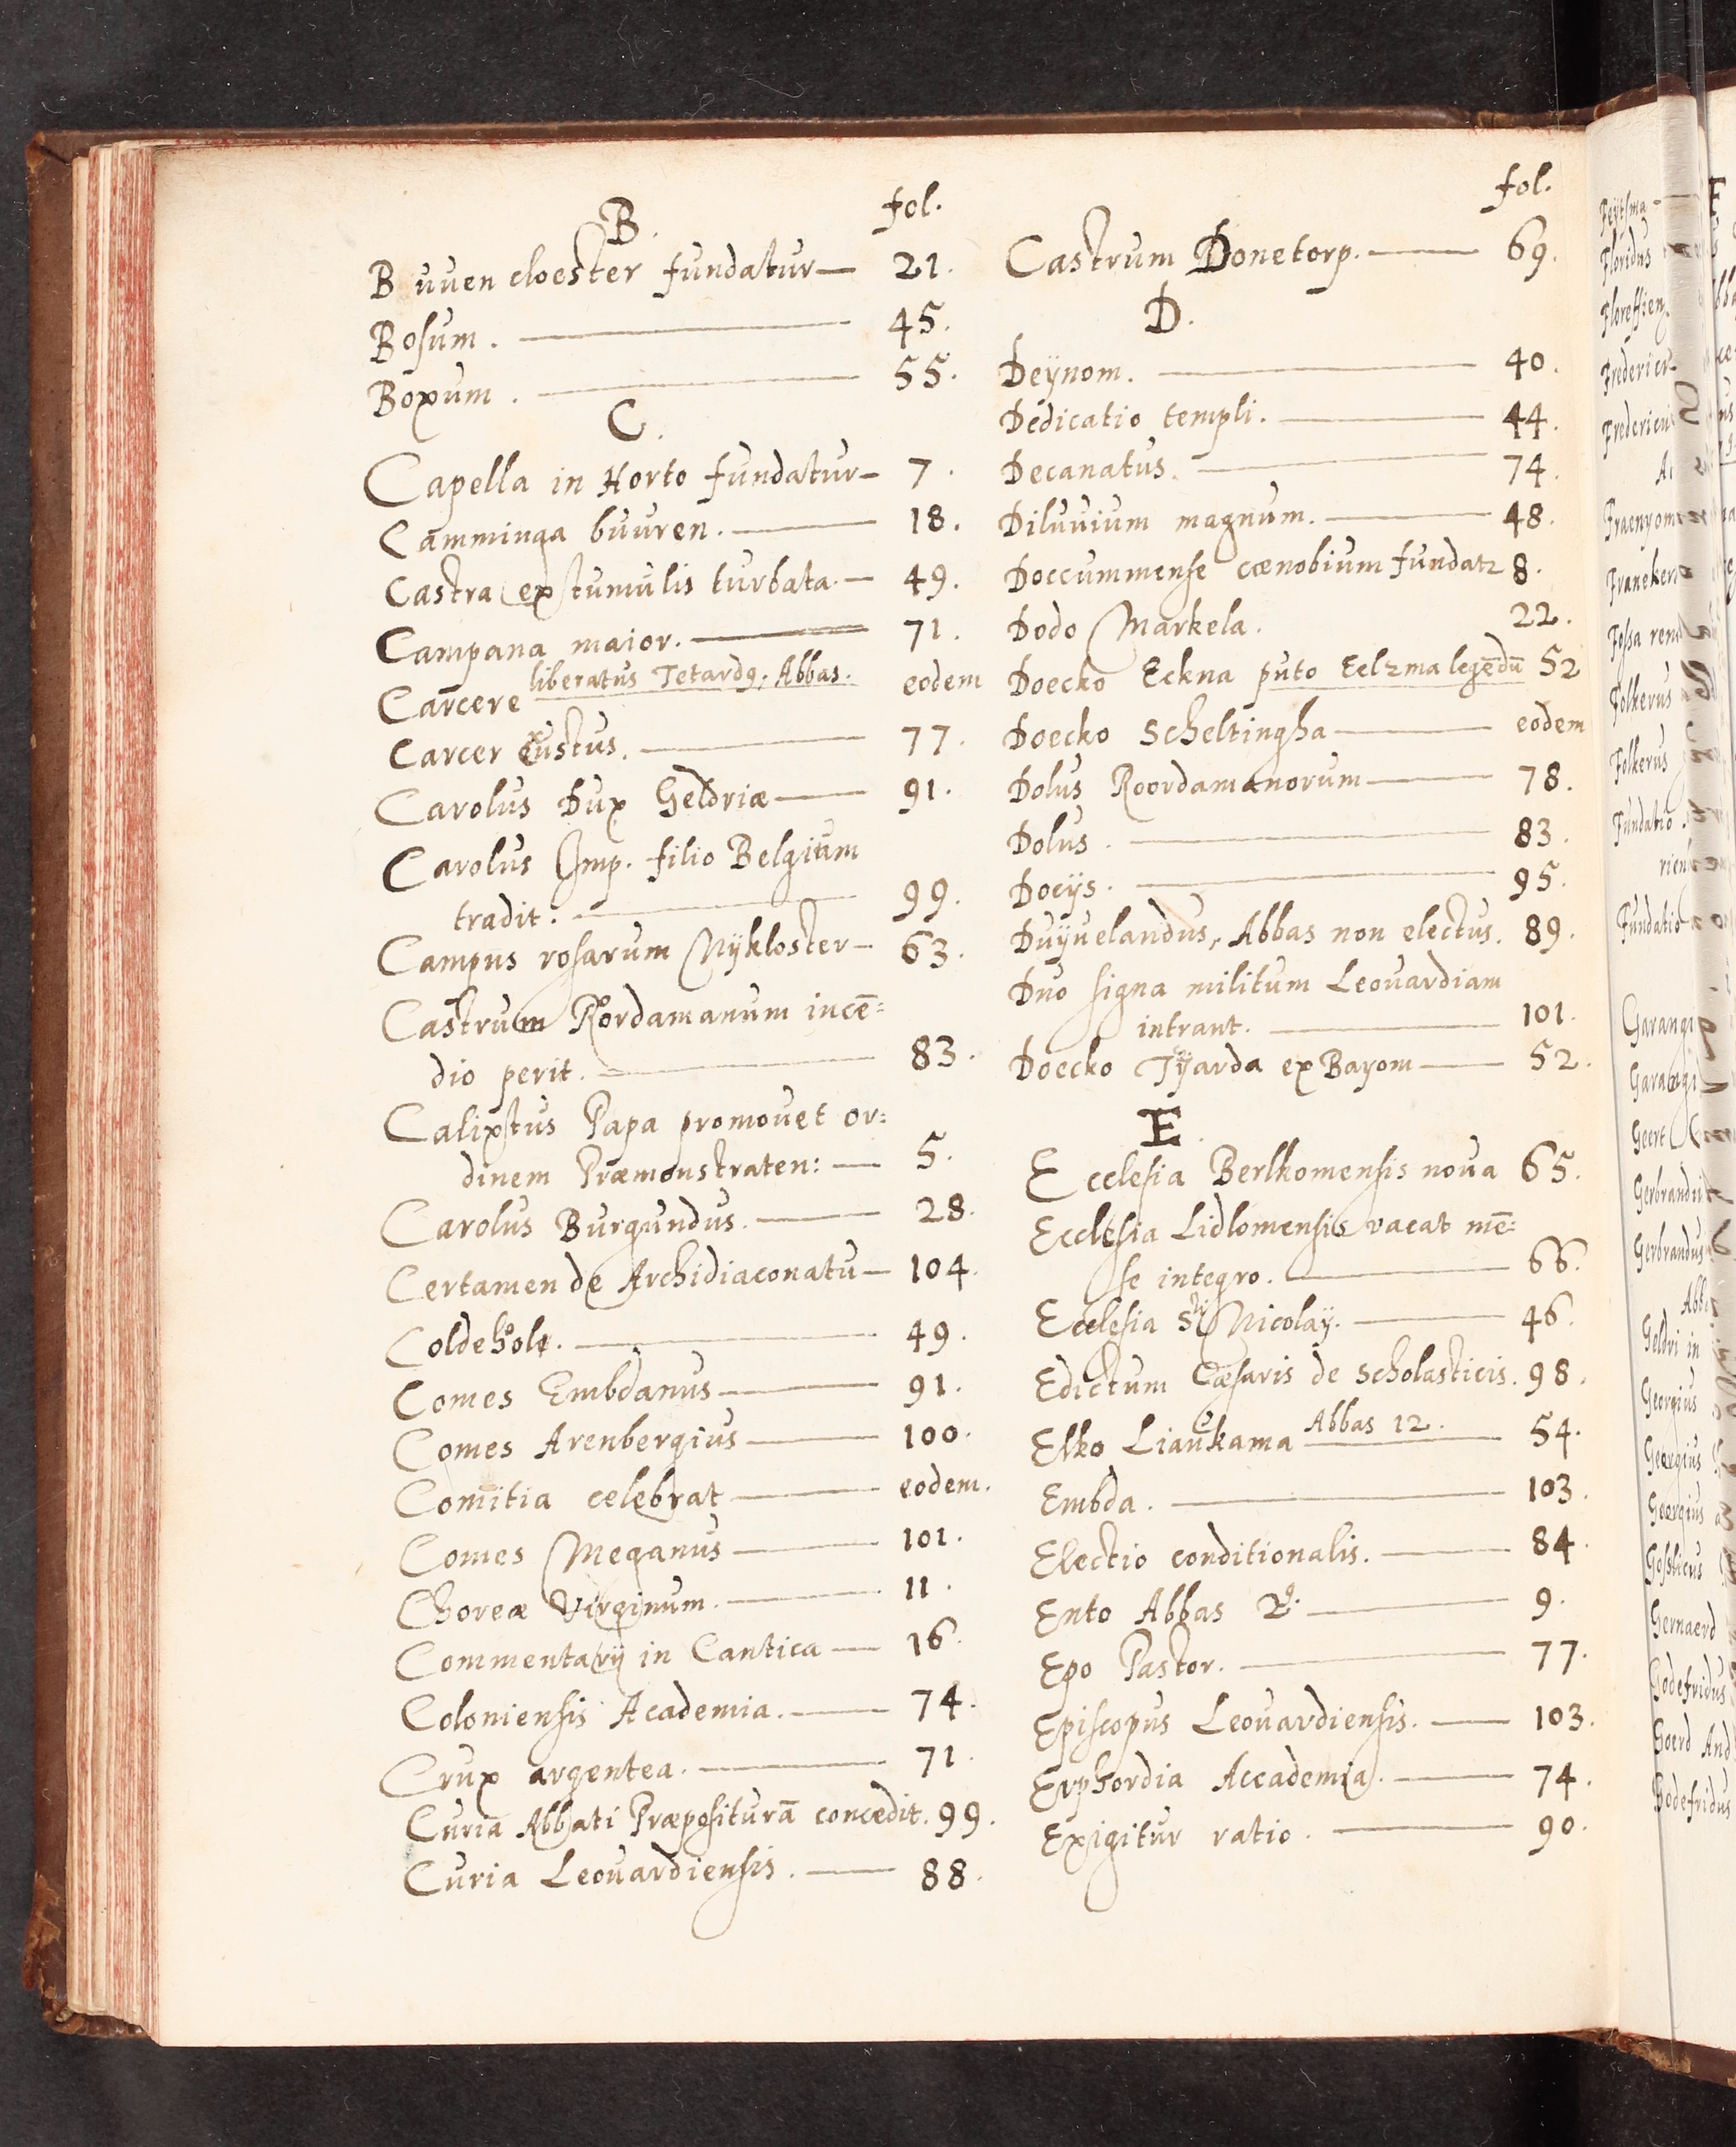 B. fol.
Buuen cloester fundatur 21.
Bosum. 45.
Boxum. 55.
C.
Capella in Horto fundatur 7.
Camminga buuren. 18.
Castra ex tumulis turbata. 49.
Campana maior. 71.
Carcere liberatus Tetardq. Abbas. eodem
Carcer 77.
Carolus Dux Geldriæ 91.
Carolus Imp. filio Belgium
tradit: 99.
Campus rosarum Nykloster 63.
Castrum Rordamanum incē=
dio perit. 83.
Calixtus Papa promouet or=
dinem Præmonstraten: 5.
Carolus Burgundus. 28.
Certamen de Archidiaconatu 104.
Coldehole. 49.
Comes Embdanus 91.
Comes Arenbergius 100.
Comitia celebrat eodem.
Comes Meganus 101.
Choreæ Virginum. 11.
Commentarij in Cantica 16.
Coloniensis Academia. 74.
Crux argentea. 71.
Curia Abbati Præpositurā concedit. 99.
Curia Leouardiensis. 88.
fol.
Castrum Donetorp. 69.
D.
Deÿnom. 40.
Dedicatio templi. 44.
Decanatus. 74.
Diluuium magnum. 48.
Doccummense cœnobium fundatz 8.
Dodo Markela. 22.
Doecko Eckna puto Eelzma legēdū 52
Doecko Scheltingha eodem
Dolus Roordamanorum 78.
Dolus. 83.
Docÿs. 95.
Duÿuelandus, Abbas non electus. 89.
Duo signa militum Leouardiam
intrant. 101.
Doecko Tÿarda ex Bayom 52.
E.
Ecclesia Berlkomensis noua 65.
Ecclesia Lidlomensis vacat mē=
se integro. 66.
Ecclesia Sti Nicolaÿ. 46.
Edictum Cæsaris de scholasticis. 98.
Elko Liaukama Abbas 12. 54.
Embda. 103.
Electio conditionalis. 84.
Ento Abbas 2ꝰ. 9.
Epo Pastor. 77.
Episcopus Leouardiensis. 103.
Erphordia Accademia. 74.
Exigitur ratio. 90.
F
Feÿtsma
Floridus
Fossa
Folkerus
Folkerus
Fundatio
Fundatio
Geert
Gerbrandus
Geldri in
Georgius
Georgius
Georgius
Gernaerd
Godefridus
Goerd And
Godefridus